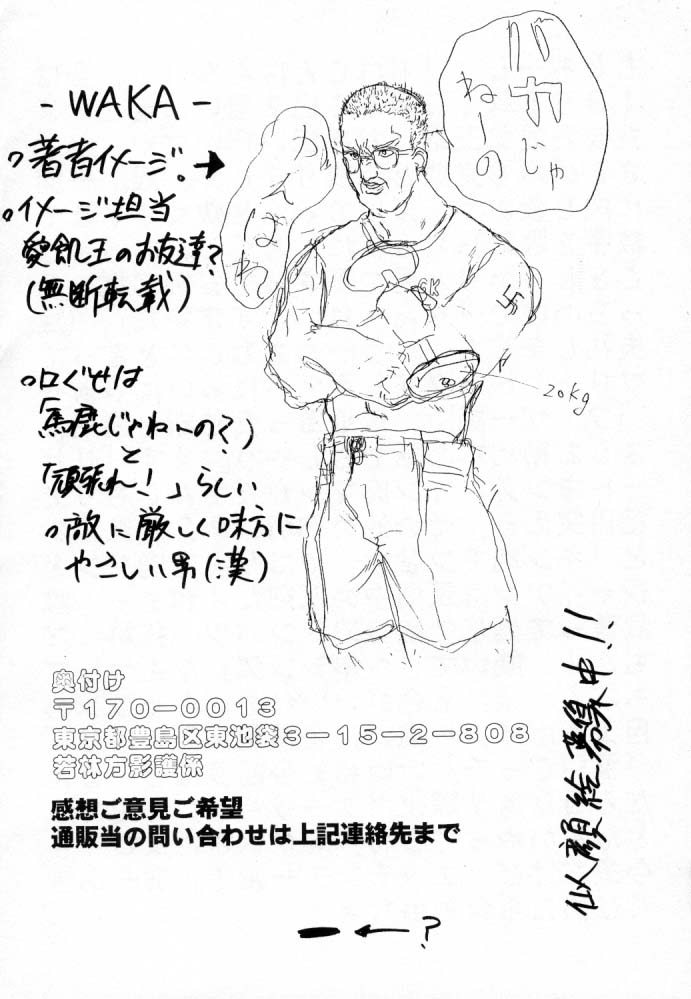 - WAKA -
○著者イメージ。→
○イメージ担当
愛飢王のお友達?
(無断転載)
○口ぐせは
「馬鹿じゃねーの?」
と
「頑張れ!」らしい
○敵に厳しく味方に
やさしい男(漢)
バカじゃ
ねーの
がんばれ
GK
卐
20kg
似顔絵募集中!!
奥付け
〒170-0013
東京都豊島区東池袋3-15-2-808
若林方影護係
感想ご意見ご希望
通販当の問い合わせは上記連絡先まで
ー←?